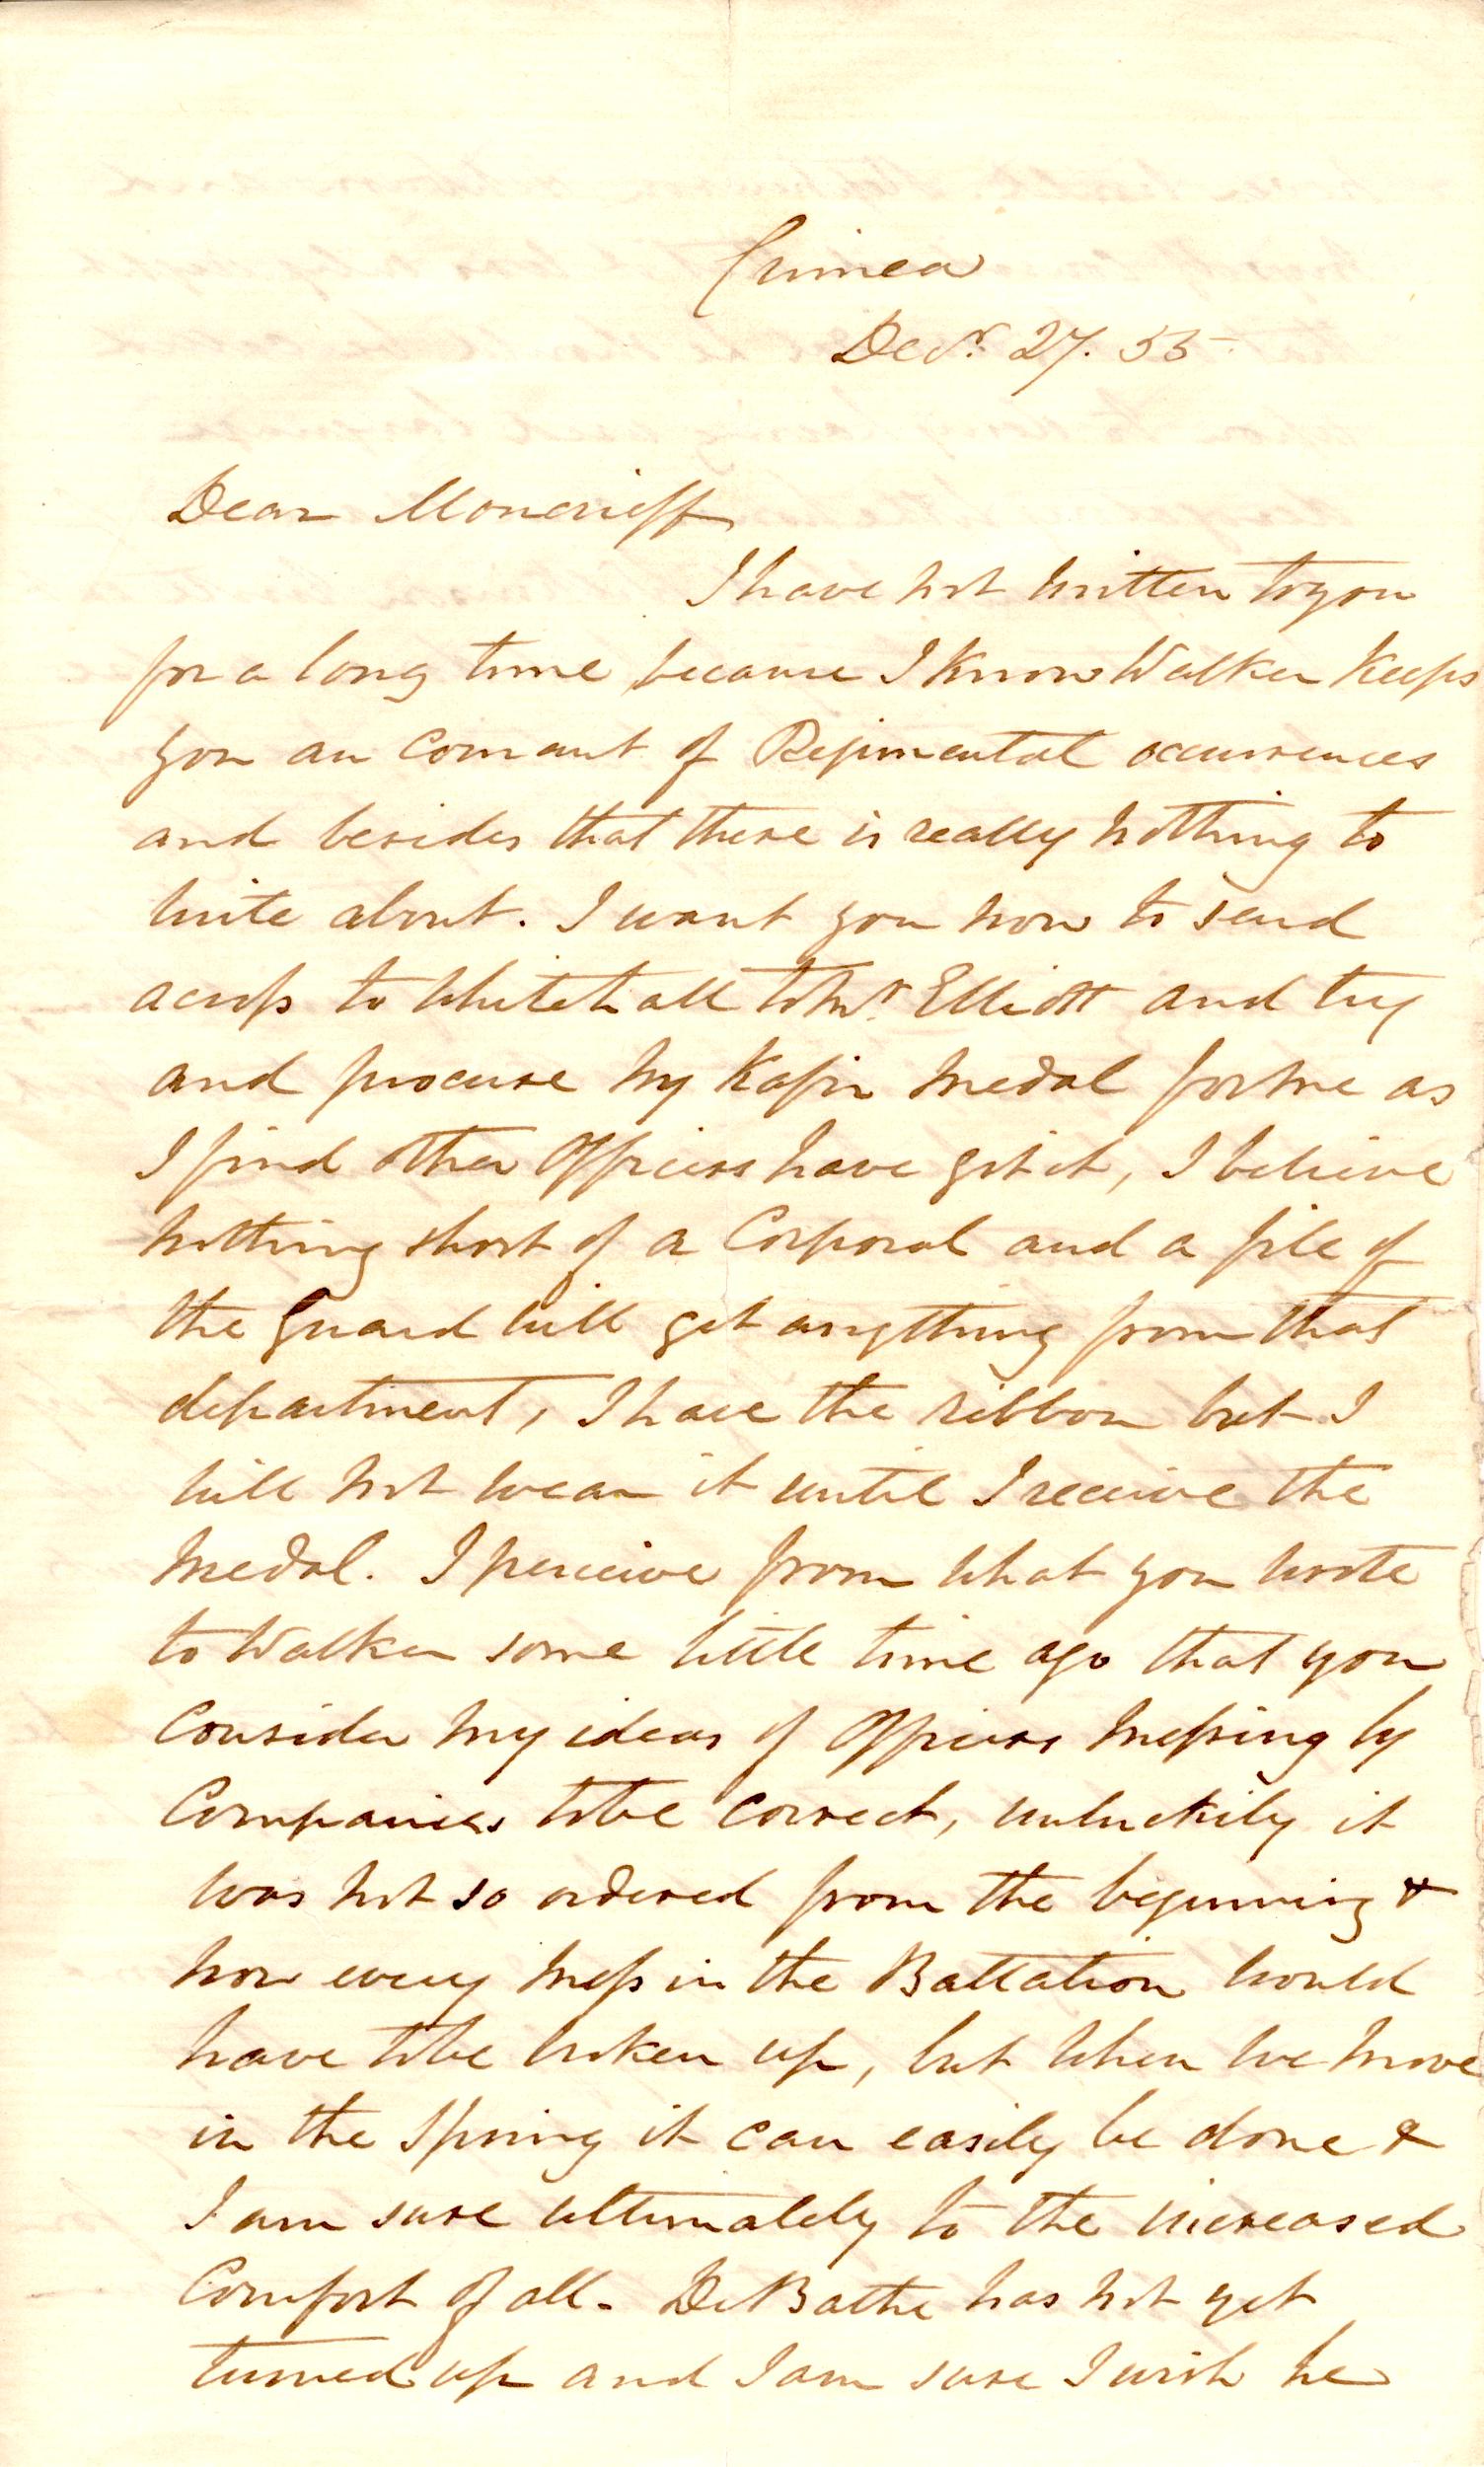 Crimea
Decr. 27. 55
Dear Moncrieff
I have not written to you
for a long time because I know Walker keeps
you au courant of Regimental occurrences
and besides that there is really nothing to
write about. I want you now to send
across to Whitehall to Mr. Elliott and try
and procure my Kafir Medal for me as
I find other Officers have got it, I believe
nothing short of a Corporal and a file of
the Guard will get anything from that
department, I have the ribbon but I
will not wear it until I receive the
Medal. I perceive from what you wrote
to Walker some little time ago that you
consider my ideas of Officers messing by
Companies to be correct, unluckily it
was not so ordered from the beginning &
now every mess in the Battalion would
have to be broken up, but when we move
in the Spring it can easily be done &
I am sure ultimately to the increased
Comfort of all. De Bathe has not yet
turned up and I am sure I wish he